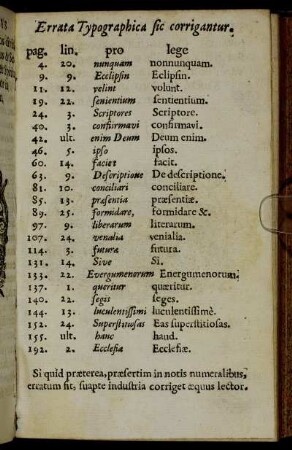 Errata Typographica sic corrigantur.
pag. lin. pro lege
4. 20. nunquam nonnunquam.
9. 9. Ecclipsin Eclipsin.
11. 12. velint volunt.
19. 22. senientium sentientium.
24. 3. Scriptores Scriptore.
40. 3. confiirmavi confirmavi.
42. ult. enim Deum Deum enim.
46. 5. ipso ipsos.
60. 14. faciet facit.
63. 9. Descriptione De descriptione.
81. 10. conciliari conciliare.
85. 13. præsentia præsentiæ.
89. 25. formidare, formidare &.
97. 9. liberarum literarum.
107. 24. venalia venialia.
114. 3. futura futura.
131. 14. Sive Si.
133. 22. Evergumenorum Energumenorum.
137. 1. queritur quæritur.
140. 22. segis leges.
144. 13. luculentissimi luculentissimè.
152. 24. Superstitusas Eas superstitiosas.
155. ult. hanc haud.
192. 2. Ecclesia Ecclesiæ.
Si quid præterea, præsertim in notis numeralibus,
erratum sit, suapte industria corriget æquus lector.